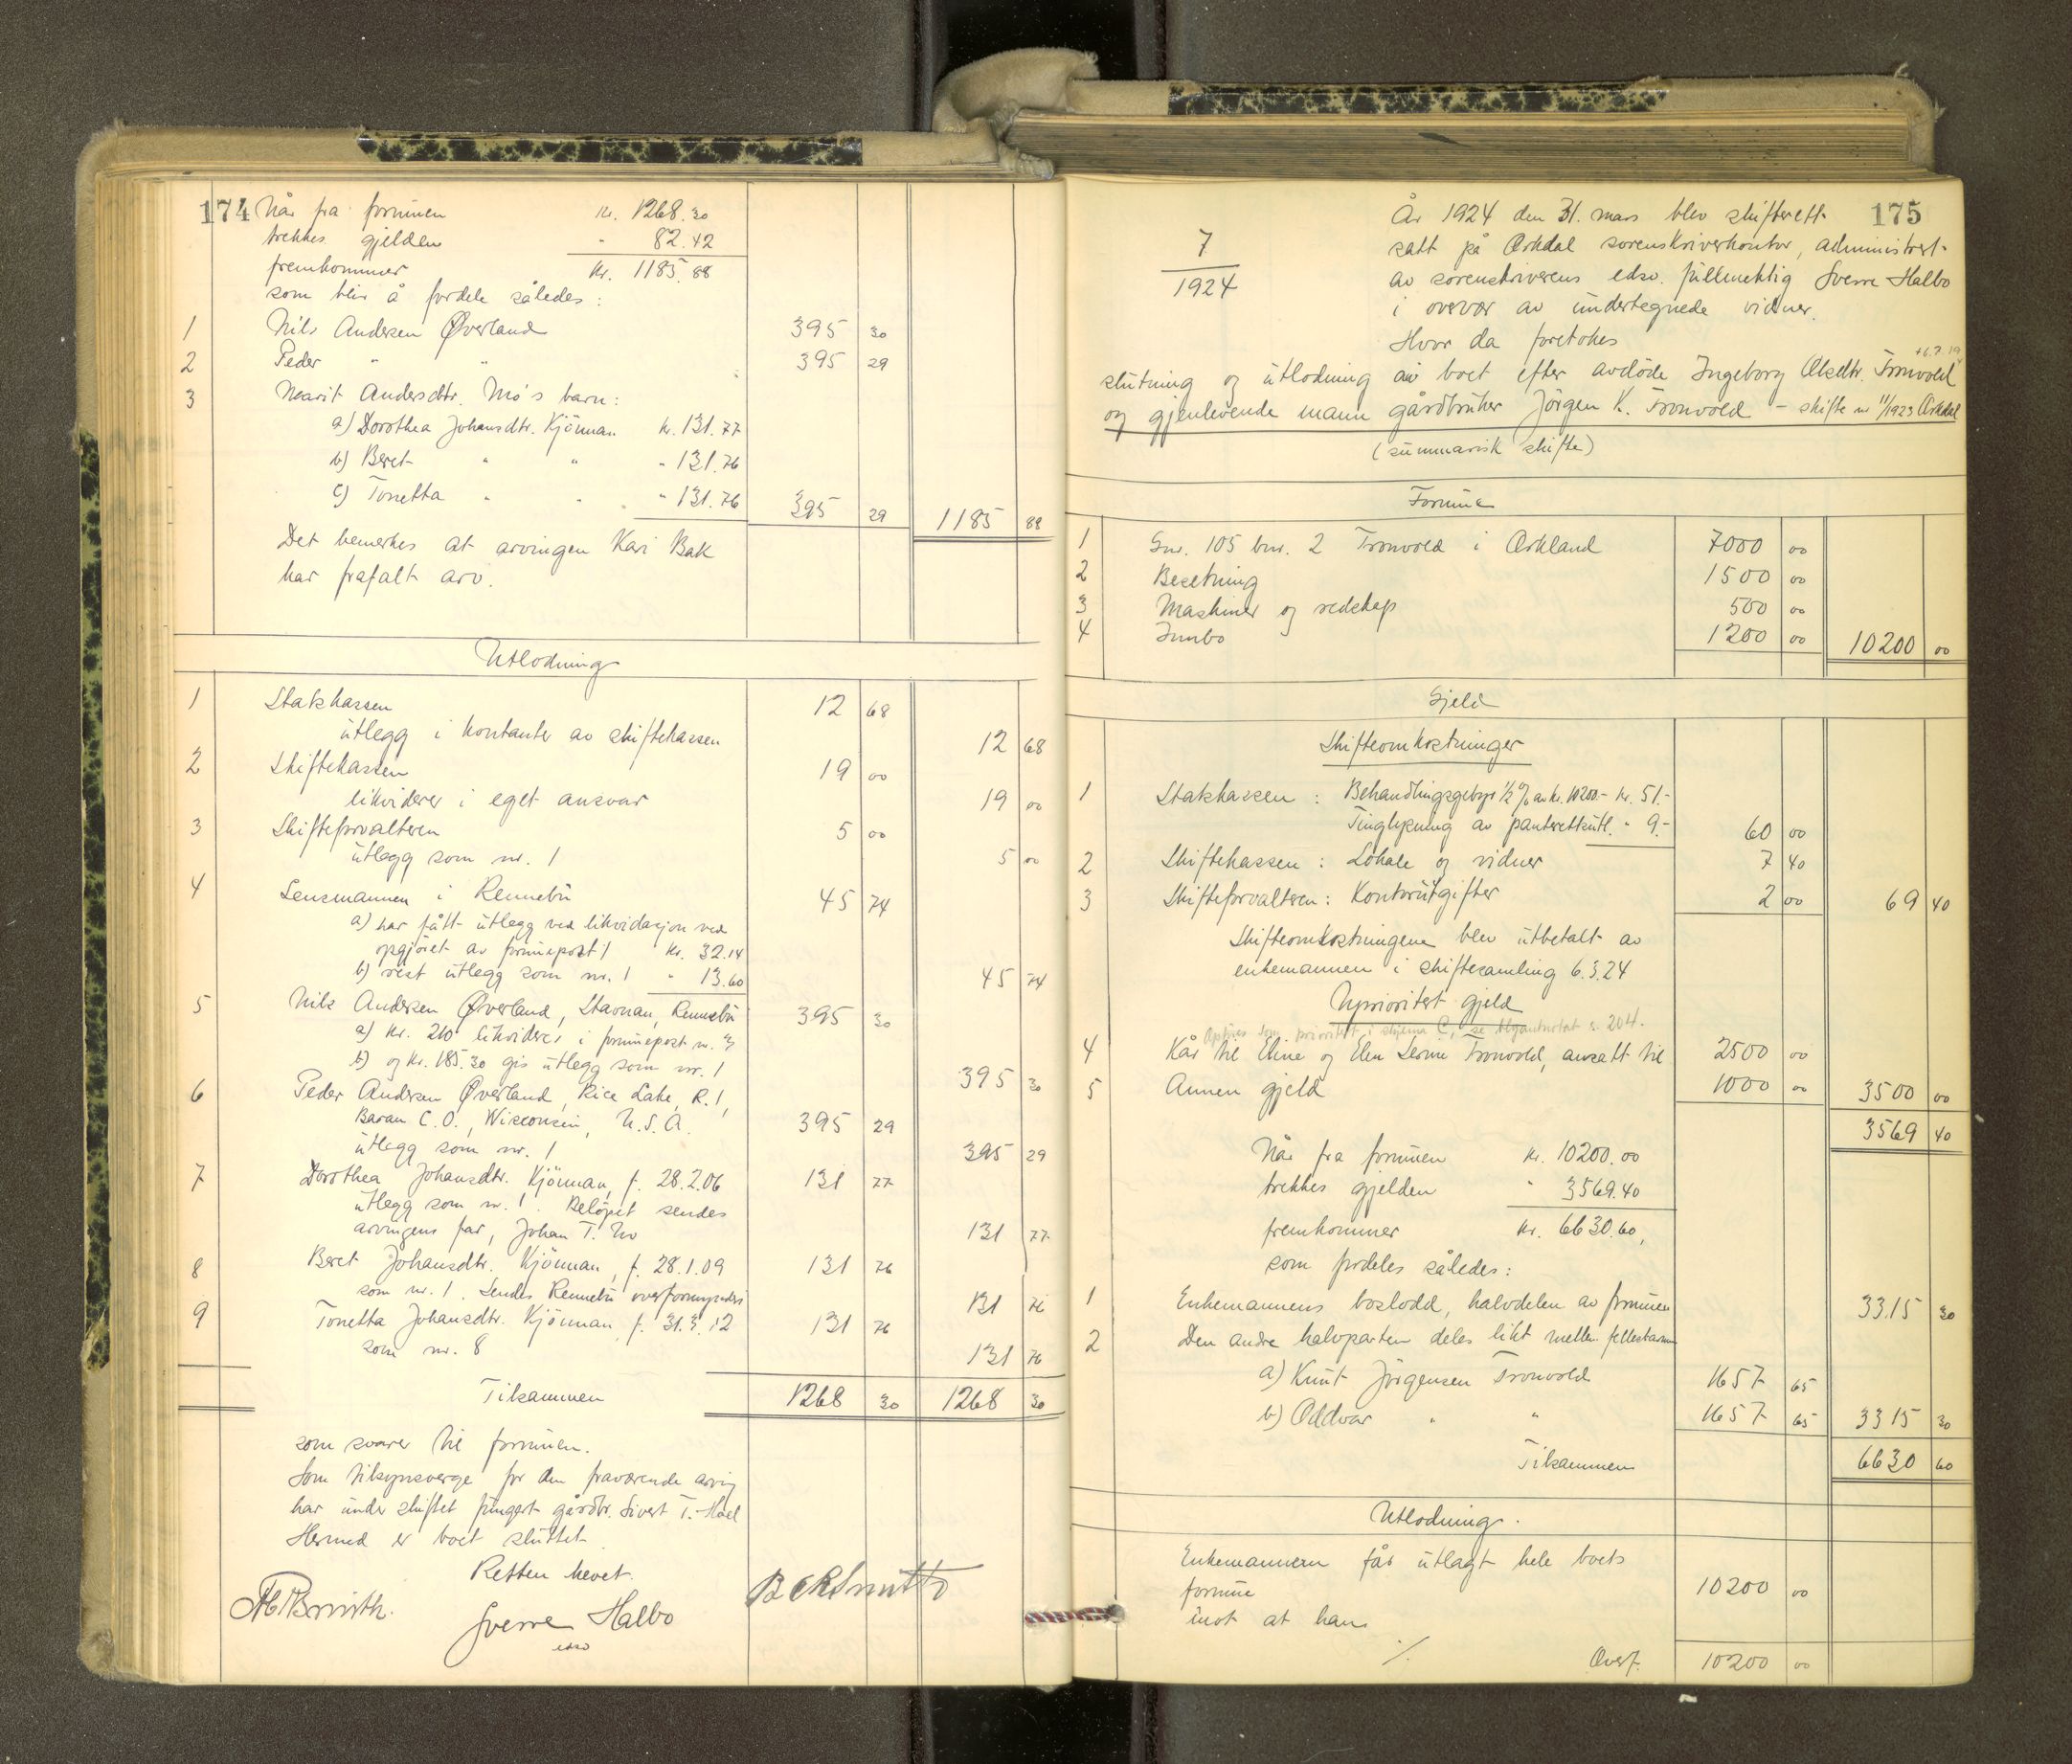 174 Når fra formuen kr. 1268.30
trekkes gjelden " 82.42
fremkommer kr. 1185.88
som blir å fordele således:
1 Nils Andersen Øverland 395 30
2 Peder " " 395 29
3 Marit Andersdtr. Mo's barn:
a) Dorothea Johansdtr. Kjönnan kr. 131.77
b) Beret " " " 131.76
c) Tonetta " " " 131.76 395 29 1185 88
Det bemerkes at arvingen Kari Bak
har frafalt arv.
Utlodning
1 Statskassen 12 68
utlegg i kontanter av skiftekassen 12 68
2 Skiftekassen 19 00
likviderer i eget ansvar 19 00
3 Skifteforvalteren 5 00
utlegg som nr. 1 5 00
4 Lensmannen i Rennebu 45 74
a) har fått utlegg ved likvidasjon ved
opgjöret av formuepost 1 kr. 32.14
b) rest utlegg som nr. 1 " 13.60 45 74
5 Nils Andersen Øverland, Stavnan, Rennebu 395 30
a) kr. 210 likvideres i formuepost nr. 3
b) og kr. 185.30 gis utlegg som nr. 1 395 30
6 Peder Andersen Øverland, Rice Lake, R. 1,
Baran C.O., Wisconsin, U.S.A. 395 29
utlegg som nr. 1 395 29
7 Dorothea Johansdtr. Kjönnan, f. 28.2.06 131 77
utlegg som nr. 1. Belöpet sendes
arvingens far, Johan T. Mo 131 77
8 Beret Johansdtr. Kjönnan, f. 28.1.09 131 76
som nr. 1. Sendes Rennebu overformynderi 131 76
9 Tonetta Johansdtr. Kjönnan, f. 31.3.12 131 76
som nr. 8 131 76
Tilsammen 1268 30 1268 30
som svarer til formuen.
Som tilsynsverge for den fraværende arving
har under skiftet fungert gårdbr. Sivert T. Hoel
Hermed er boet sluttet.
Retten hevet.
Sverre Halbo
edsv
175
År 1924 den 31. mars blev skifterett
7
1924
satt på Orkdal sorenskriverkontor, administrert
av sorenskriverens edsv. fullmektig Sverre Halbo
i overvær av undertegnede vidner.
Hvor da foretokes
slutning og utlodning av boet efter avdöde Ingeborg Olsdtr. Tronvold
og gjenlevende mann gårdbruker Jörgen K. Tronvold - skifte nr 11/1923 Orkdal
(summarisk skifte)
Formue
1 Gnr. 105 bnr. 2 Tronvold i Orkland 7000 00
2 Besetning 1500 00
3 Maskiner og redskap 500 00
4 Innbo 1200 00 10200 00
Gjeld
Skifteomkostninger
1 Statskassen: Behandlingsgebyr 1/2 % av kr. 10200.- kr. 51.-
Tinglysning av panterettsutl. " 9.- 60 00
2 Skiftekassen: Lokale og vidner 7 40
3 Skifteforvalteren: Kontorutgifter 2 00 69 40
Skifteomkostningene blev utbetalt av
enkemannen i skiftesamling 6.3.24
Uprioritert gjeld
Opföres som prioritert i skjema C, se s. 204.
4 Kår til Eline og Elen Tronvold, ansatt til 2500 00
5 Annen gjeld 1000 00 3500 00
3569 40
Når fra formuen kr. 10200.00
trekkes gjelden " 3569.40
fremkommer kr. 6630.60,
som fordeles således:
1 Enkemannens boslodd, halvdelen av formuen 3315 30
2 Den andre halvparten deles likt mellem fellesbarna
a) Knut Jörgensen Tronvold 1657 65
b) Oddvar " " 1657 65 3315 30
Tilsammen 6630 60
Utlodning.
Enkemannen får utlagt hele boets
formue 10200 00
imot at han
./. Overf. 10200 00